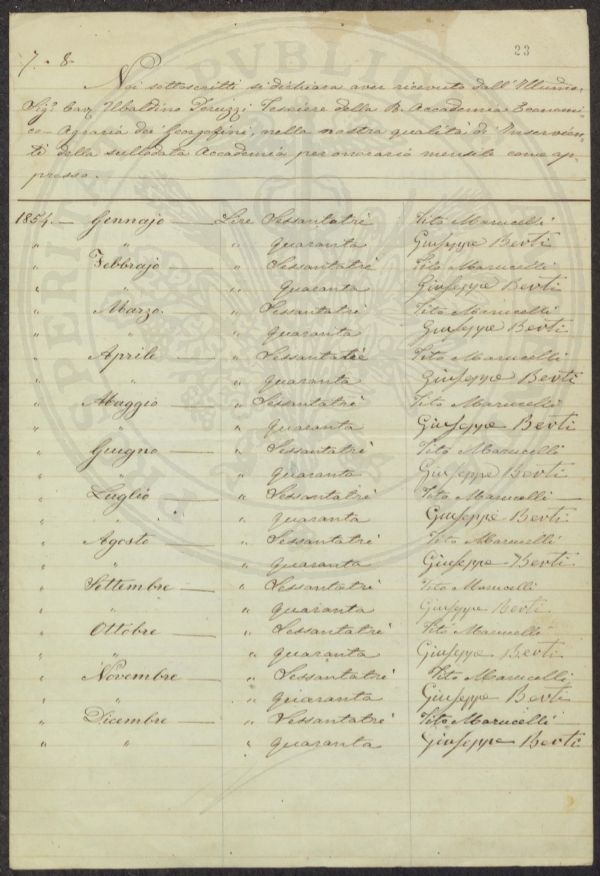 23
7. 8.
Noi sottoscritti si dichiara aver ricevuto dall' Illmo
Sigr. Cav. Ubaldino Peruzzi Tesoriere della R. Accademia Economi-
co-Agraria dei Georgofini, nella nostra qualità di Inservien-
ti della sullodata Accademia per onorario mensile come ap-
presso.
1854. — Gennajo — Lire Sessantatrè Tito Marucelli
" " " Quaranta Giuseppe Berti
" Febbrajo — " Sessantatrè Tito Marucelli
" " " Quaranta Giuseppe Berti
" Marzo. — " Sessantatrè Tito Marucelli
" " " Quaranta Giuseppe Berti
" Aprile — " Sessantatrè Tito Marucelli
" " " Quaranta Giuseppe Berti
" Maggio — " Sessantatrè Tito Marucelli
" " " Quaranta Giuseppe Berti
" Giugno — " Sessantatrè Tito Marucelli
" " " Quaranta Giuseppe Berti
" Luglio — " Sessantatrè Tito Marucelli —
" " " Quaranta Giuseppe Berti
" Agosto — " Sessantatrè Tito Marucelli
" " " Quaranta Giuseppe Berti
" Settembre — " Sessantatrè Tito Marucelli
" " " Quaranta Giuseppe Berti
" Ottobre — " Sessantatrè Tito Marucelli
" " " Quaranta Giuseppe Berti
" Novembre — " Sessantatrè Tito Marucelli
" " " Quaranta Giuseppe Berti
" Dicembre — " Sessantatrè Tito Marucelli
" " " Quaranta Giuseppe Berti